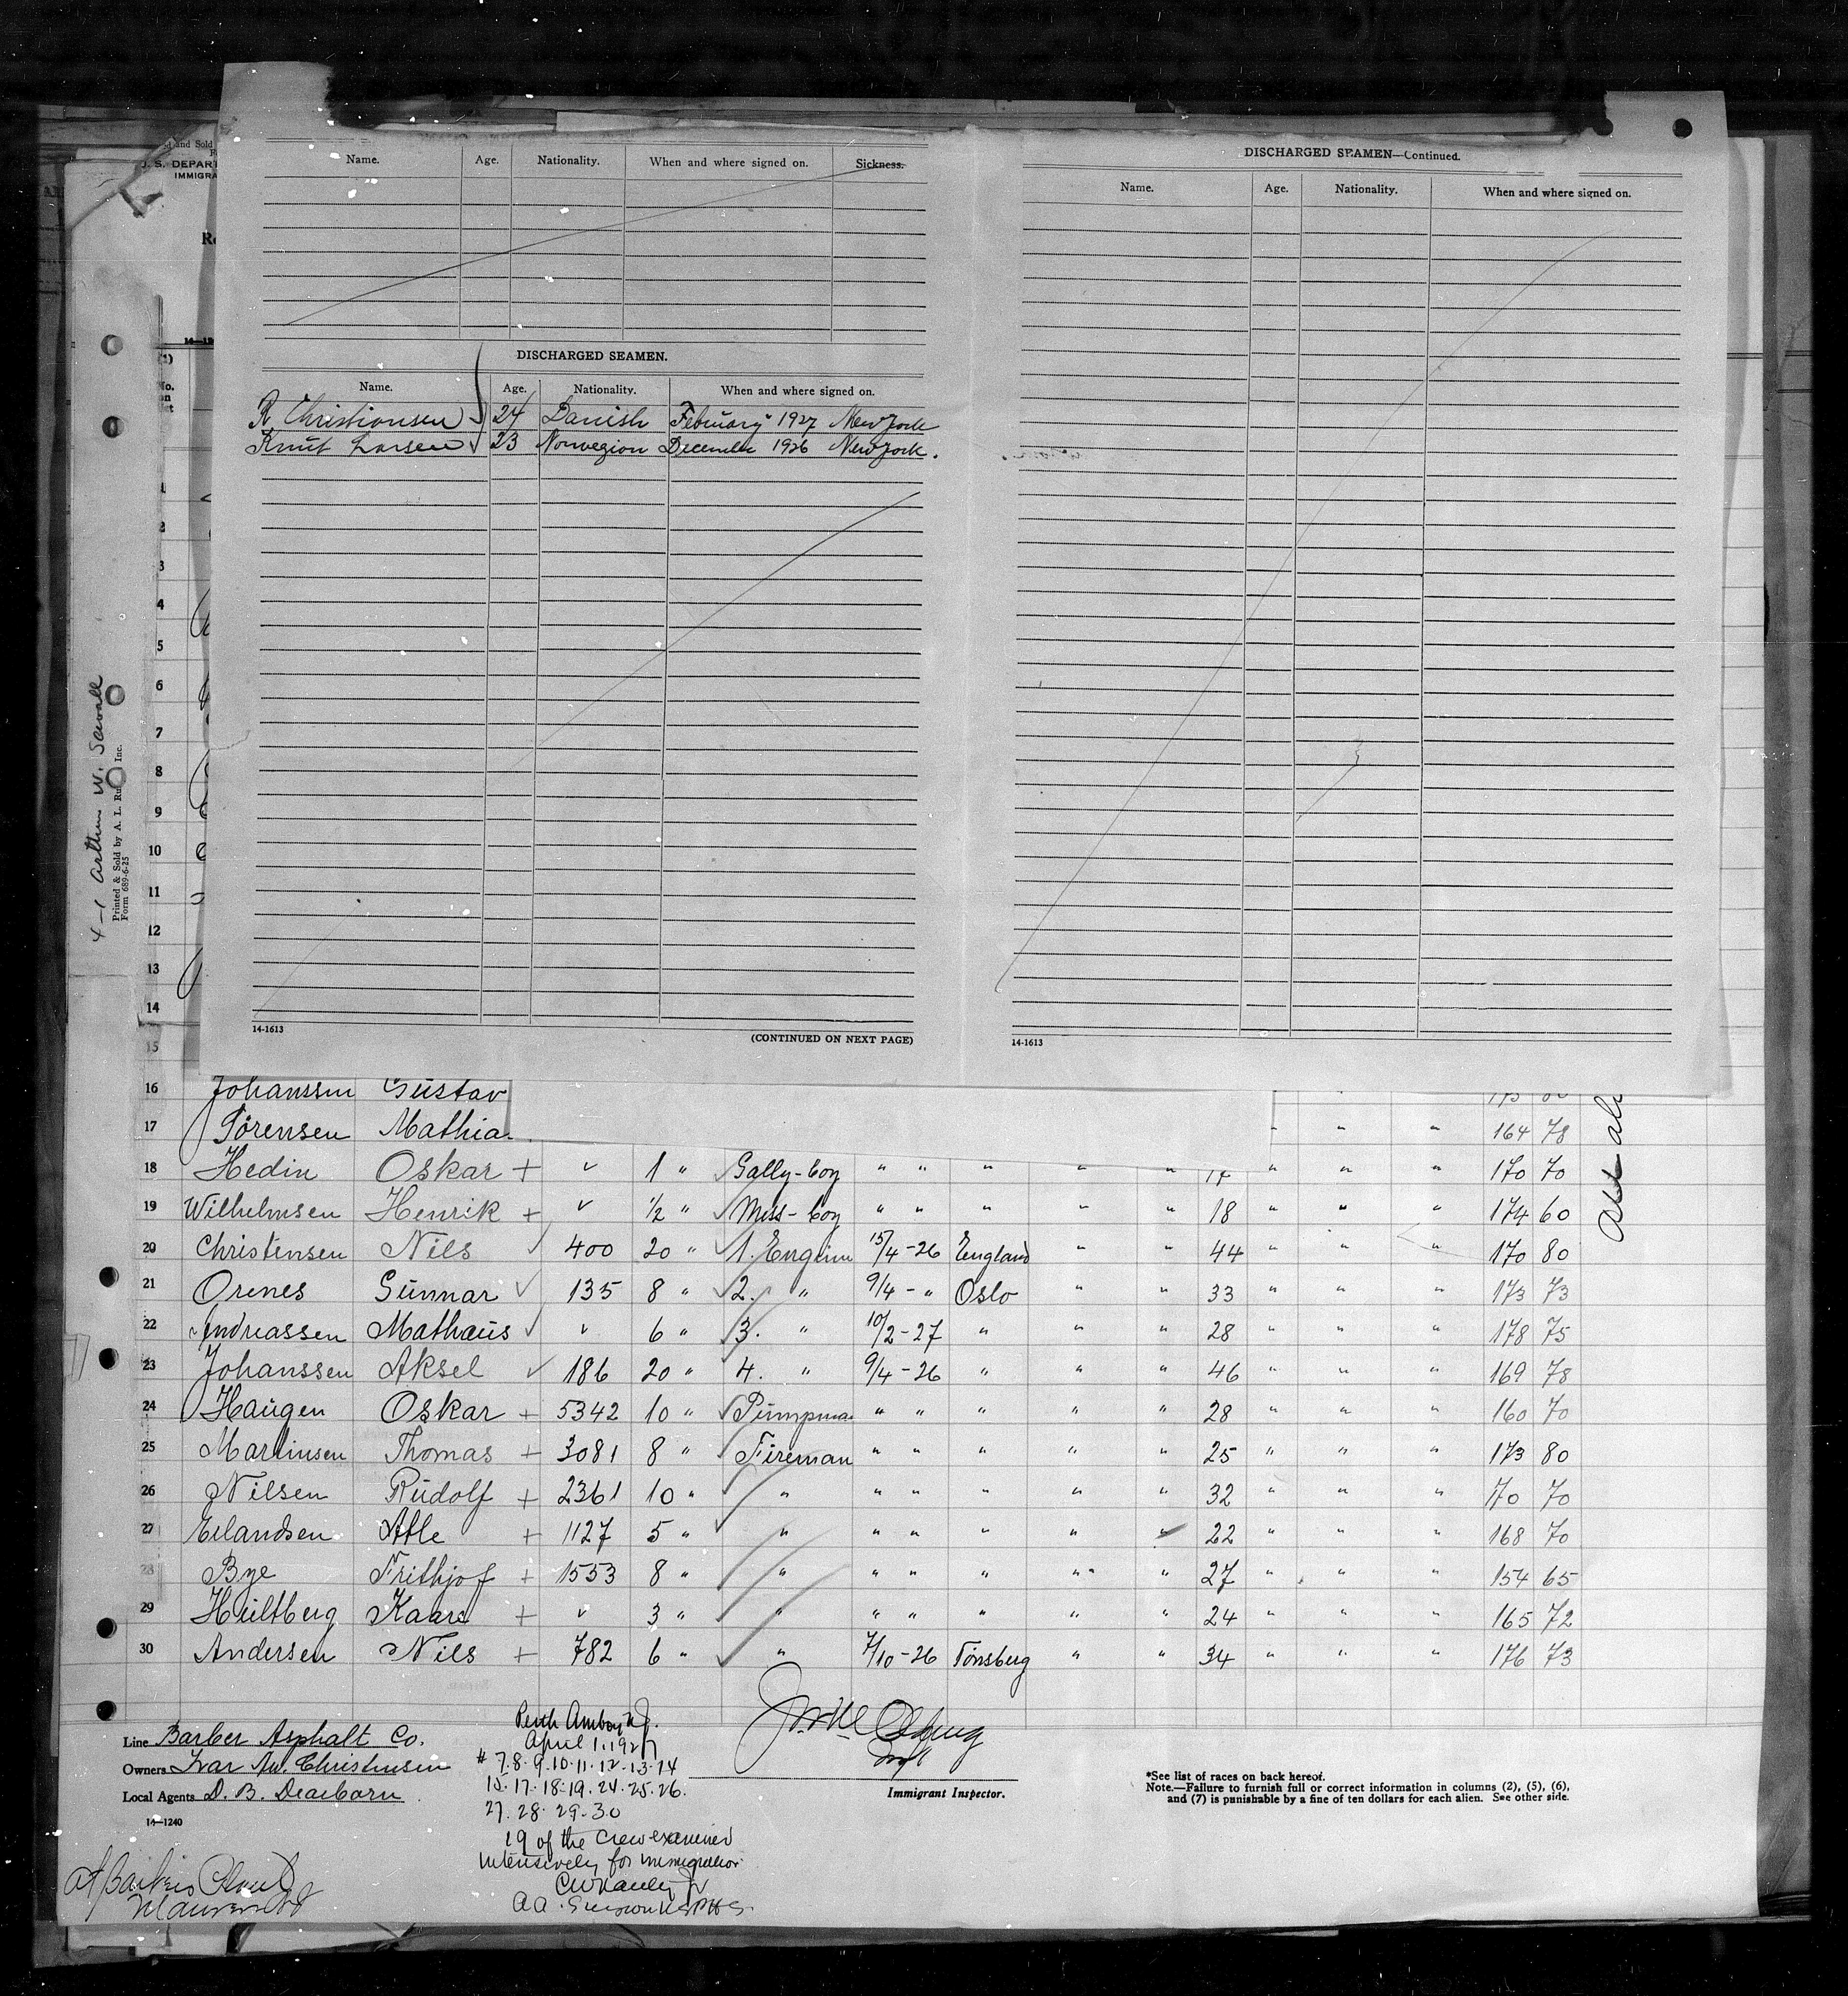 d and Sold
U. S. DEPART
IMMIGRA
Name. Age. Nationality. When and where signed on. Sickness.
DISCHARGED SEAMEN.
Name. Age. Nationality. When and where signed on.
R. Christiansen 24 Danish February 1927 New York
Knut Larsen 23 Norwegian December 1926 New York.
14-1613 (CONTINUED ON NEXT PAGE)
DISCHARGED SEAMEN—Continued.
Name. Age. Nationality. When and where signed on.
14-1613
(1)
No.
on
list
1
2
3
4
5
6
7
8
9
10
11
12
13
14
15
4-1 Arthur W. Sewall
Printed & Sold by A. L. Ru Inc.
Form 689-6-25
16 Johanssen Gustav
17 Sörensen Mathia " " " 164 78
18 Hedin Oskar + ✓ 1 " Gally-boy " " " " " 17 " " " 170 70
19 Wilhelmsen Henrik + ✓ 1/2 " Mess-boy " " " " " 18 " " " 174 60
20 Christensen Nils ✓ 400 20 " 1. Engin 15/4-26 England " " 44 " " " 170 80
21 Orenes Gunnar ✓ 135 8 " 2. " 9/4 - " Oslo " " 33 " " " 173 73
22 Andreassen Mathæus ✓ ✓ 6 " 3. " 10/2-27 " " " 28 " " " 178 75
23 Johanssen Aksel ✓ 186 20 " 4. " 9/4-26 " " " 46 " " " 169 78
24 Haugen Oskar + 5342 10 " Pumpman " " " " " 28 " " " 160 70
25 Martinsen Thomas + 3081 8 " Fireman " " " " " 25 " " " 173 80
26 Nilsen Rudolf + 2361 10 " " " " " " " 32 " " " 170 70
27 Erlandsen Atle + 1127 5 " " " " " " " 22 " " " 168 70
28 Bye Frithjof + 1553 8 " " " " " " " 27 " " " 154 65
29 Hultberg Kaare + ✓ 3 " " " " " " " 24 " " " 165 72
30 Andersen Nils + 782 6 " " 7/10-26 Tönsberg " " 34 " " " 176 73
Line Barber Asphalt Co.
Owners Ivar An. Christensen
Local Agents D. B. Dearborn
14—1240
Perth Amboy N.J.
April 1. 1927
# 7. 8. 9. 10. 11. 12. 13. 14
15. 17. 18. 19. 24. 25. 26.
27. 28. 29. 30
19 of the crew examined
intensively for immigration
Immigrant Inspector.
*See list of races on back hereof.
Note.—Failure to furnish full or correct information in columns (2), (5), (6),
and (7) is punishable by a fine of ten dollars for each alien. See other side.